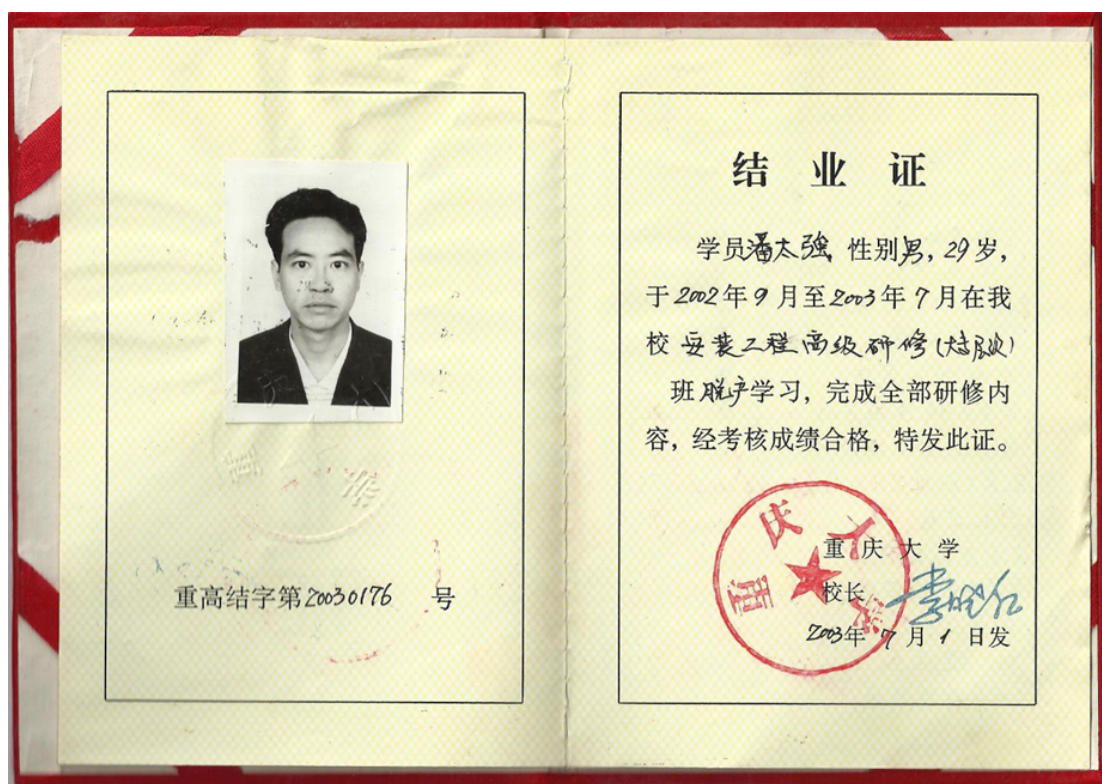 重高结字第20030176 号
结 业 证
学员潘太强,性别男,29岁,
于2002年9月至2003年7月在我
校安装工程高级研修(大专层次)
班脱产学习,完成全部研修内
容,经考核成绩合格,特发此证。
重庆大学
重庆大学
校长
2003年7月1日发